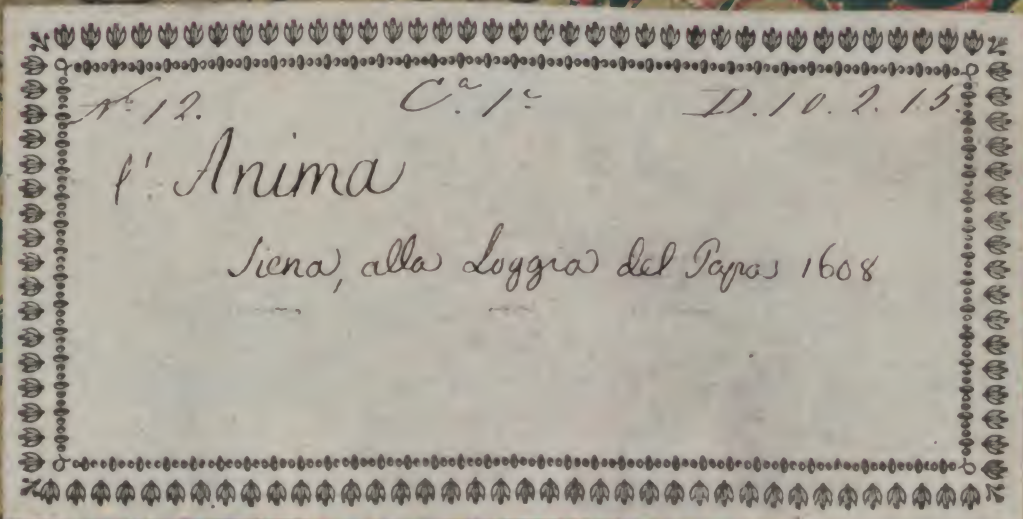 Nº 12. Cª. 1ª D. 10. 2. 15.
l'Anima
Siena, alla Loggia del Papa 1608